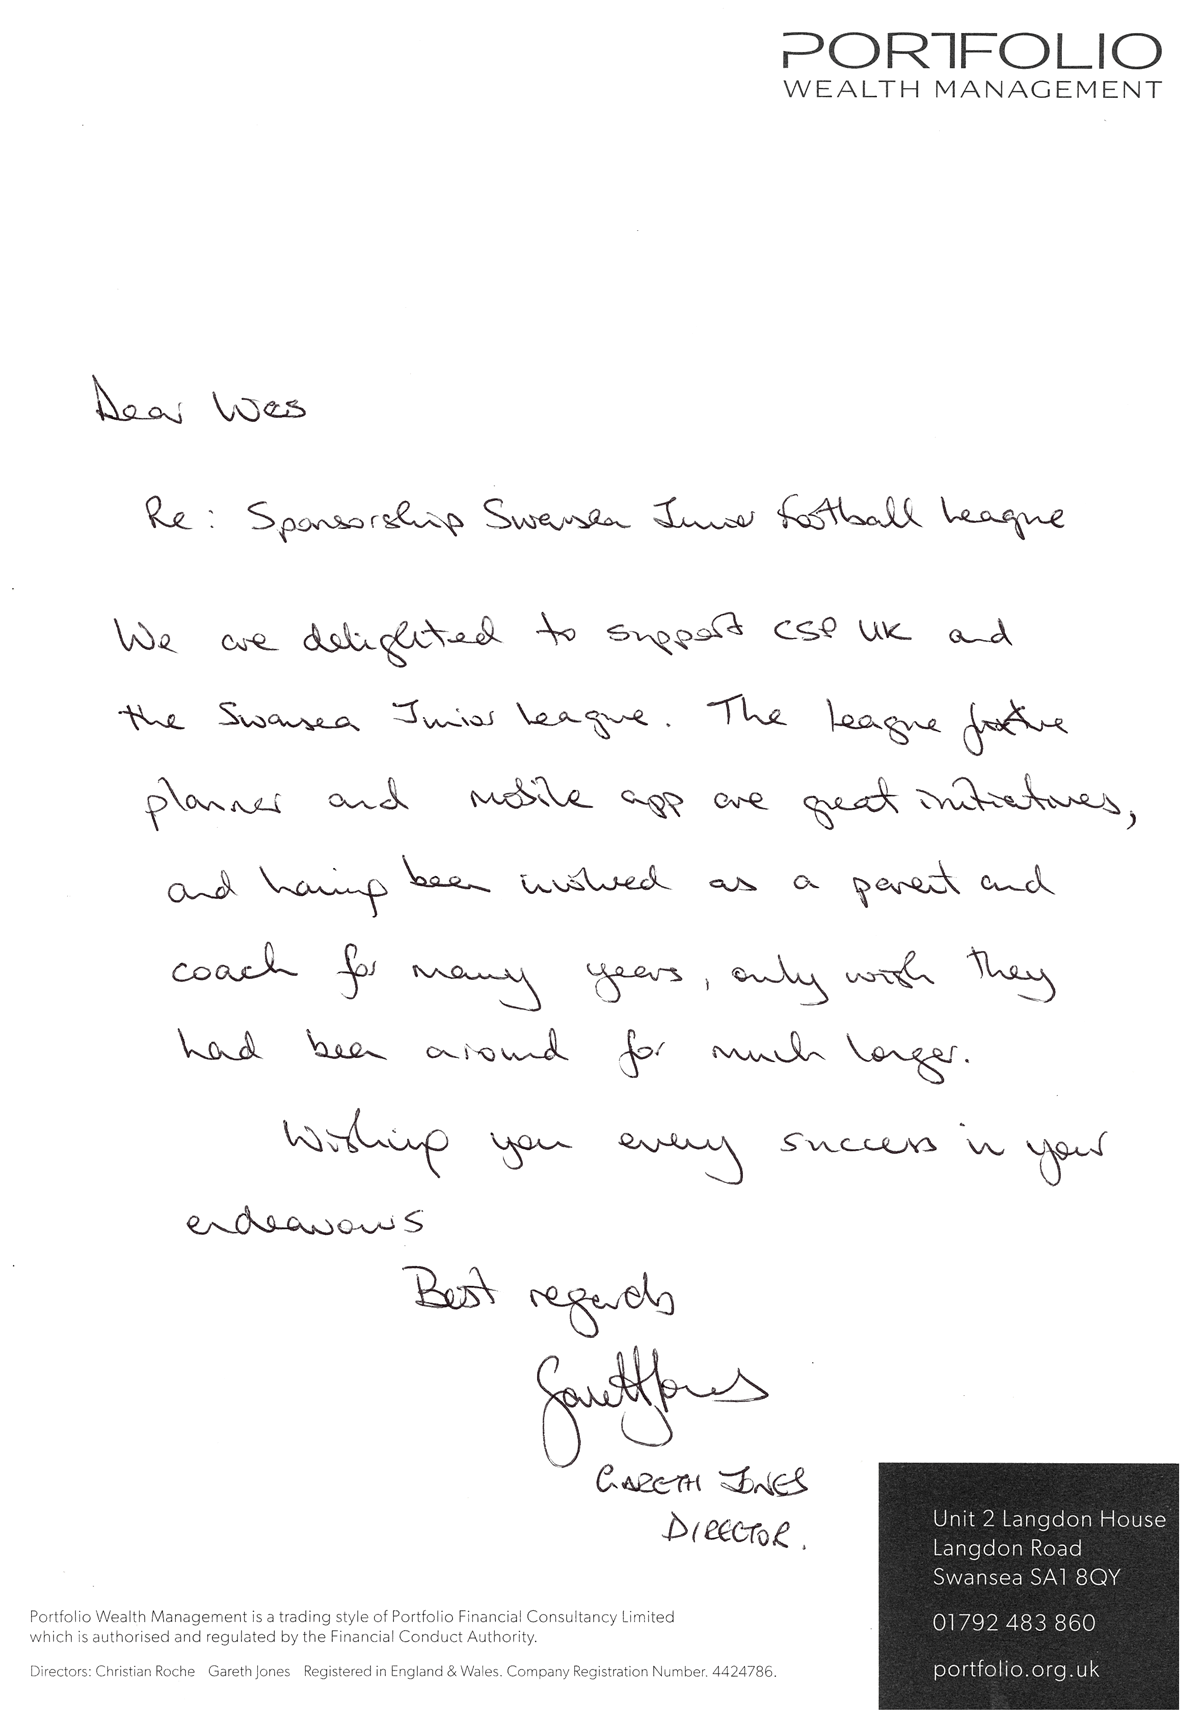 PORTFOLIO
WEALTH MANAGEMENT
Dear Wes
Re: Sponsorship Swansea Junior Football League
We are delighted to support CSP UK and
the Swansea Junior League. The League fixture
planner and mobile app are great initiatives,
and having been involved as a parent and
coach for many years, only wish they
had been around for much longer.
Wishing you every success in your
endeavours
Best regards
Gareth Jones
GARETH JONES
DIRECTOR.
Unit 2 Langdon House
Langdon Road
Swansea SA1 8QY
01792 483 860
portfolio.org.uk
Portfolio Wealth Management is a trading style of Portfolio Financial Consultancy Limited
which is authorised and regulated by the Financial Conduct Authority.
Directors: Christian Roche Gareth Jones Registered in England & Wales. Company Registration Number. 4424786.